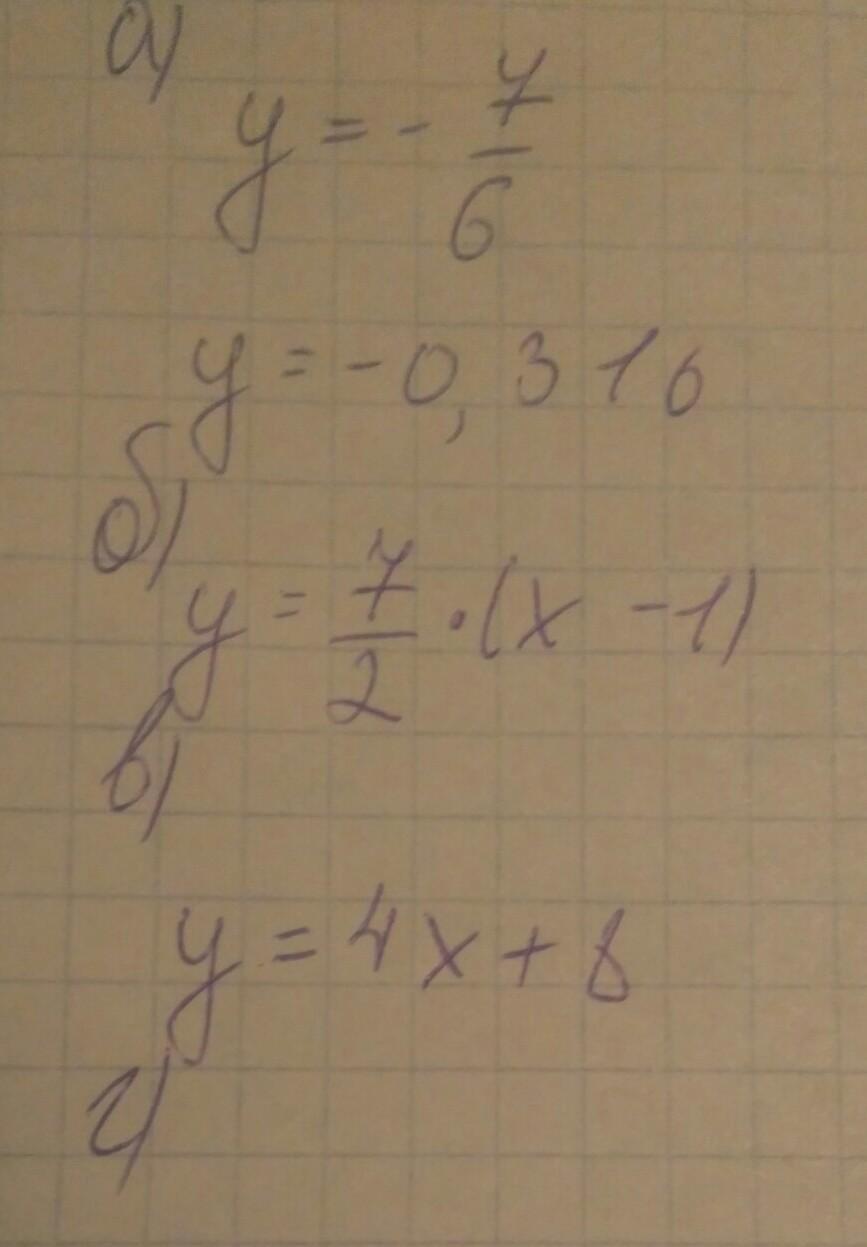 а)
y = - 7/6
y = -0,316
б)
y = 7/2 · (x - 1)
в)
y = 4x + 8
г)